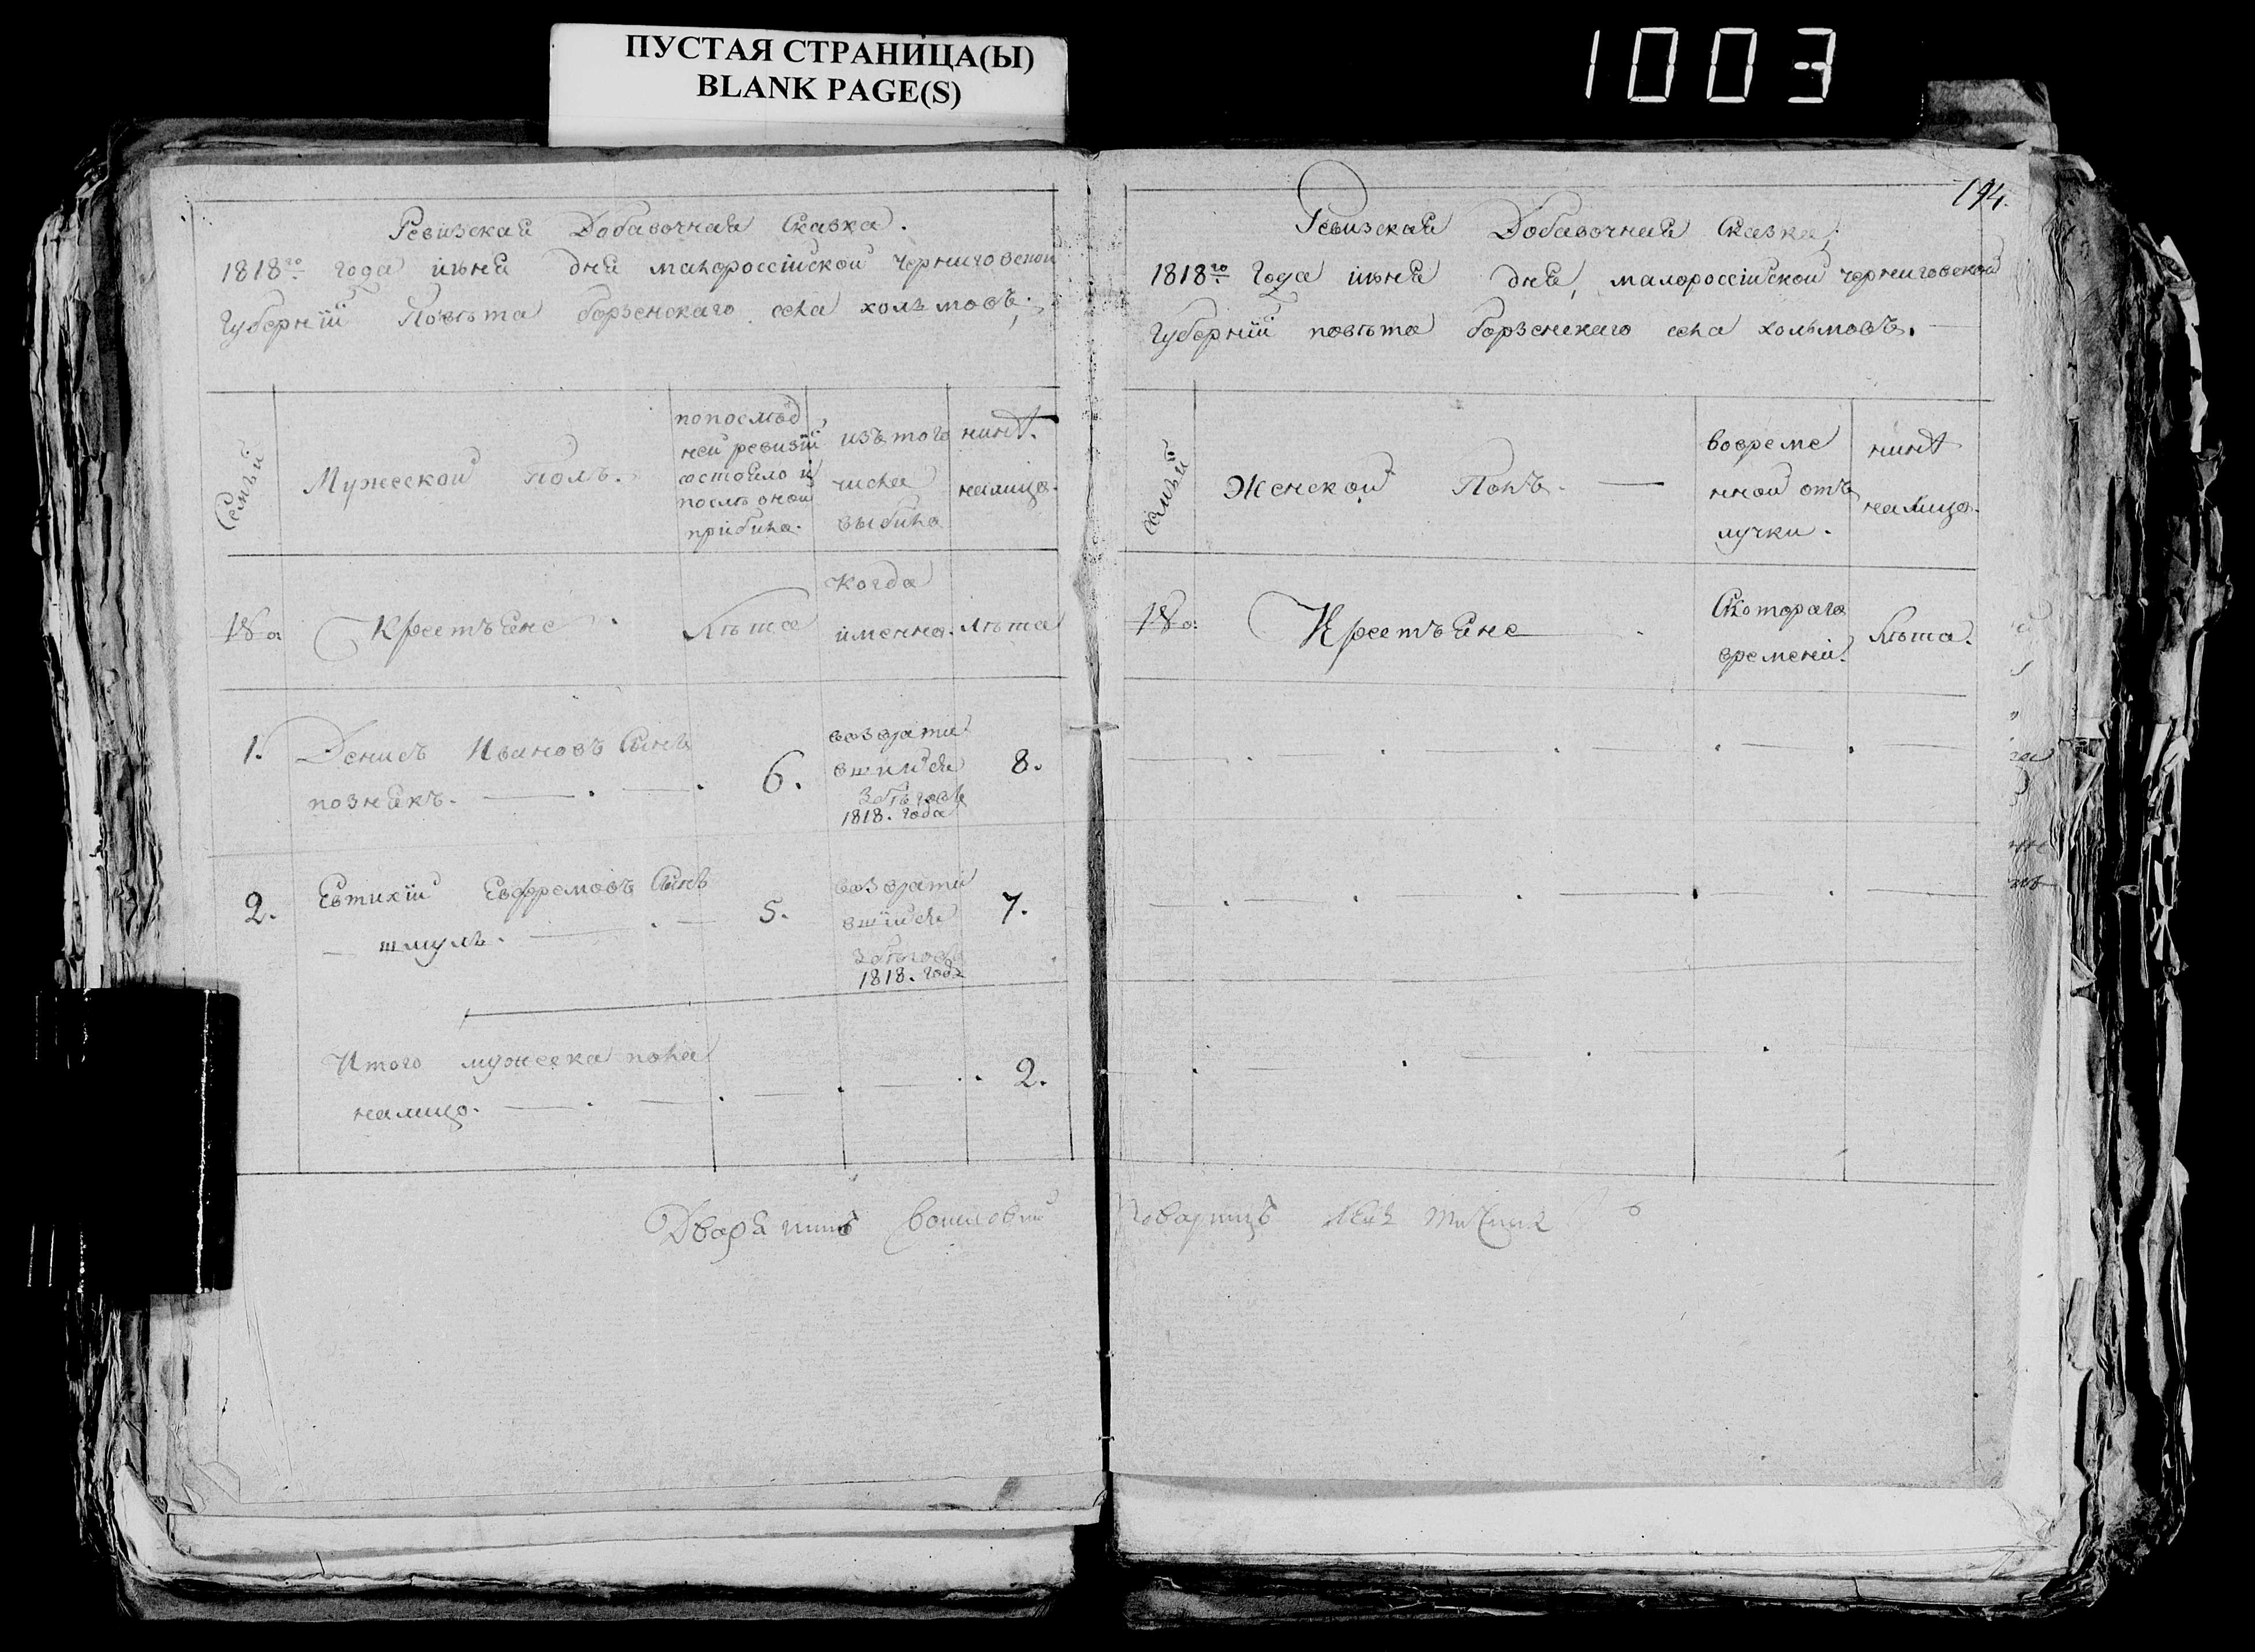 ПУСТАЯ СТРАНИЦА(Ы)
BLANK PAGE(S)
1003
Ревизская Добавочная Сказка.
1818го года июня дня малороссійской Черниговской
Губерніи Повѣта борзенскаго села холъмовъ;
Семъи
Мужеской полъ.
попослѣд
ней ревизіи
состояло и
послѣ оной
прибила.
изъ того
числа
выбила
нинѣ.
налицо.
№ о.
Крестъяне
Лѣта
когда
именна.
Лѣта
1. Денисъ Ивановъ Синъ
познякъ.
6.
возврати
вшийся
збѣговъ
1818. года
8.
2. Евтихій Евфремовъ Синъ
шмулъ.
5.
возврати
вшийся
збѣговъ
1818. года
7.
Итого мужеска пола
налицо.
2.
Дворянинъ
194.
Ревизская Добавочная Сказка,
1818го Года июня дня, малороссійской черниговской
Губерніи повѣта борзенскаго села холъмовъ.
семъи
Женской Полъ.
вовреме
нной отъ
лучки.
нинѣ
налицо.
№ о.
Крестъяне
Скотораго
времени.
Лѣта.